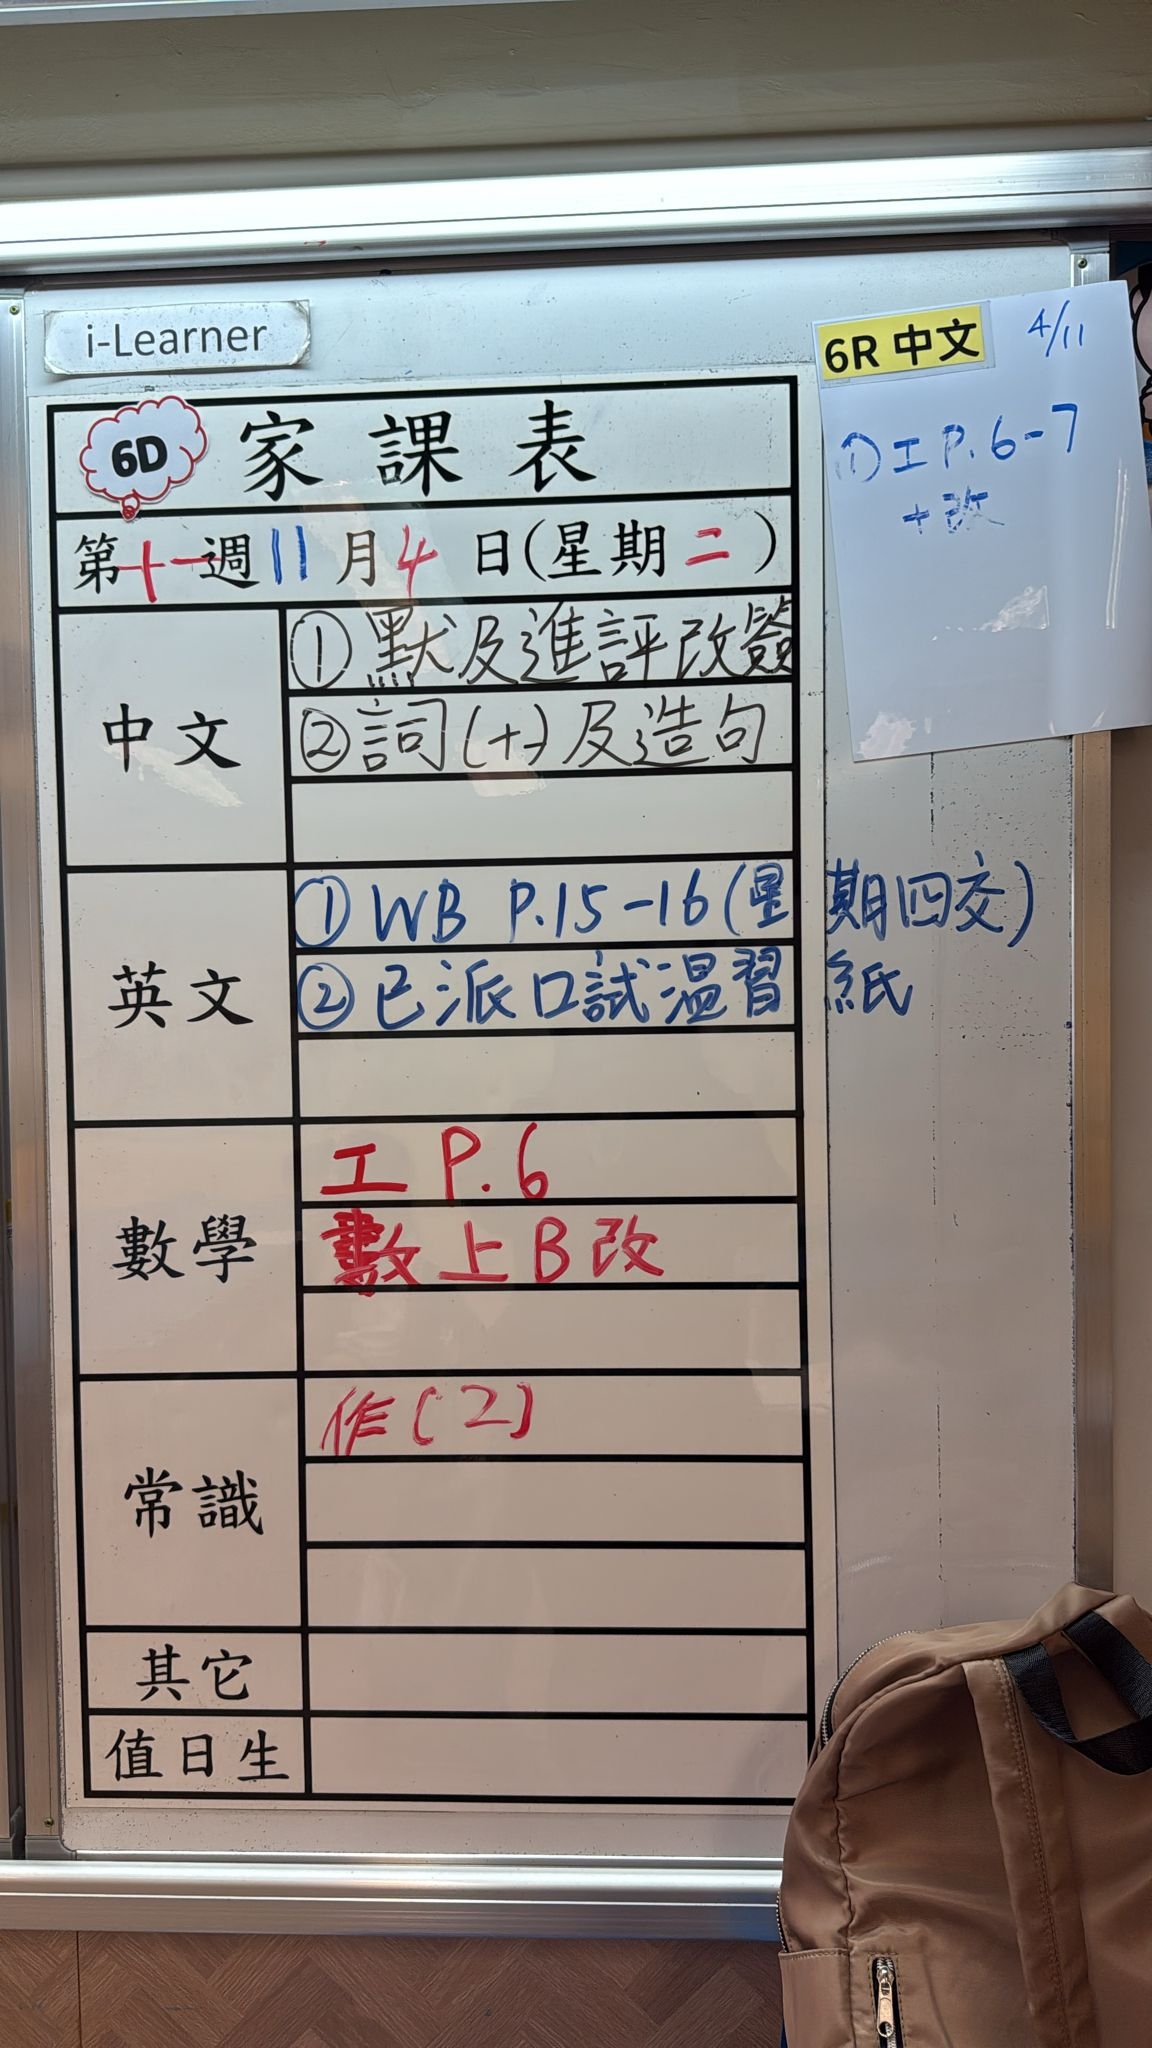 i-Learner
6R 中文
4/11
① 工 P.6-7
+改
6D 家課表
第十一週11月4日(星期二)
中文
① 默及進評改簽
② 詞(十)及造句
英文
① WB P.15-16(星期四交)
② 已派口試溫習紙
數學
工 P.6
數上B改
常識
作[2]
其它
值日生